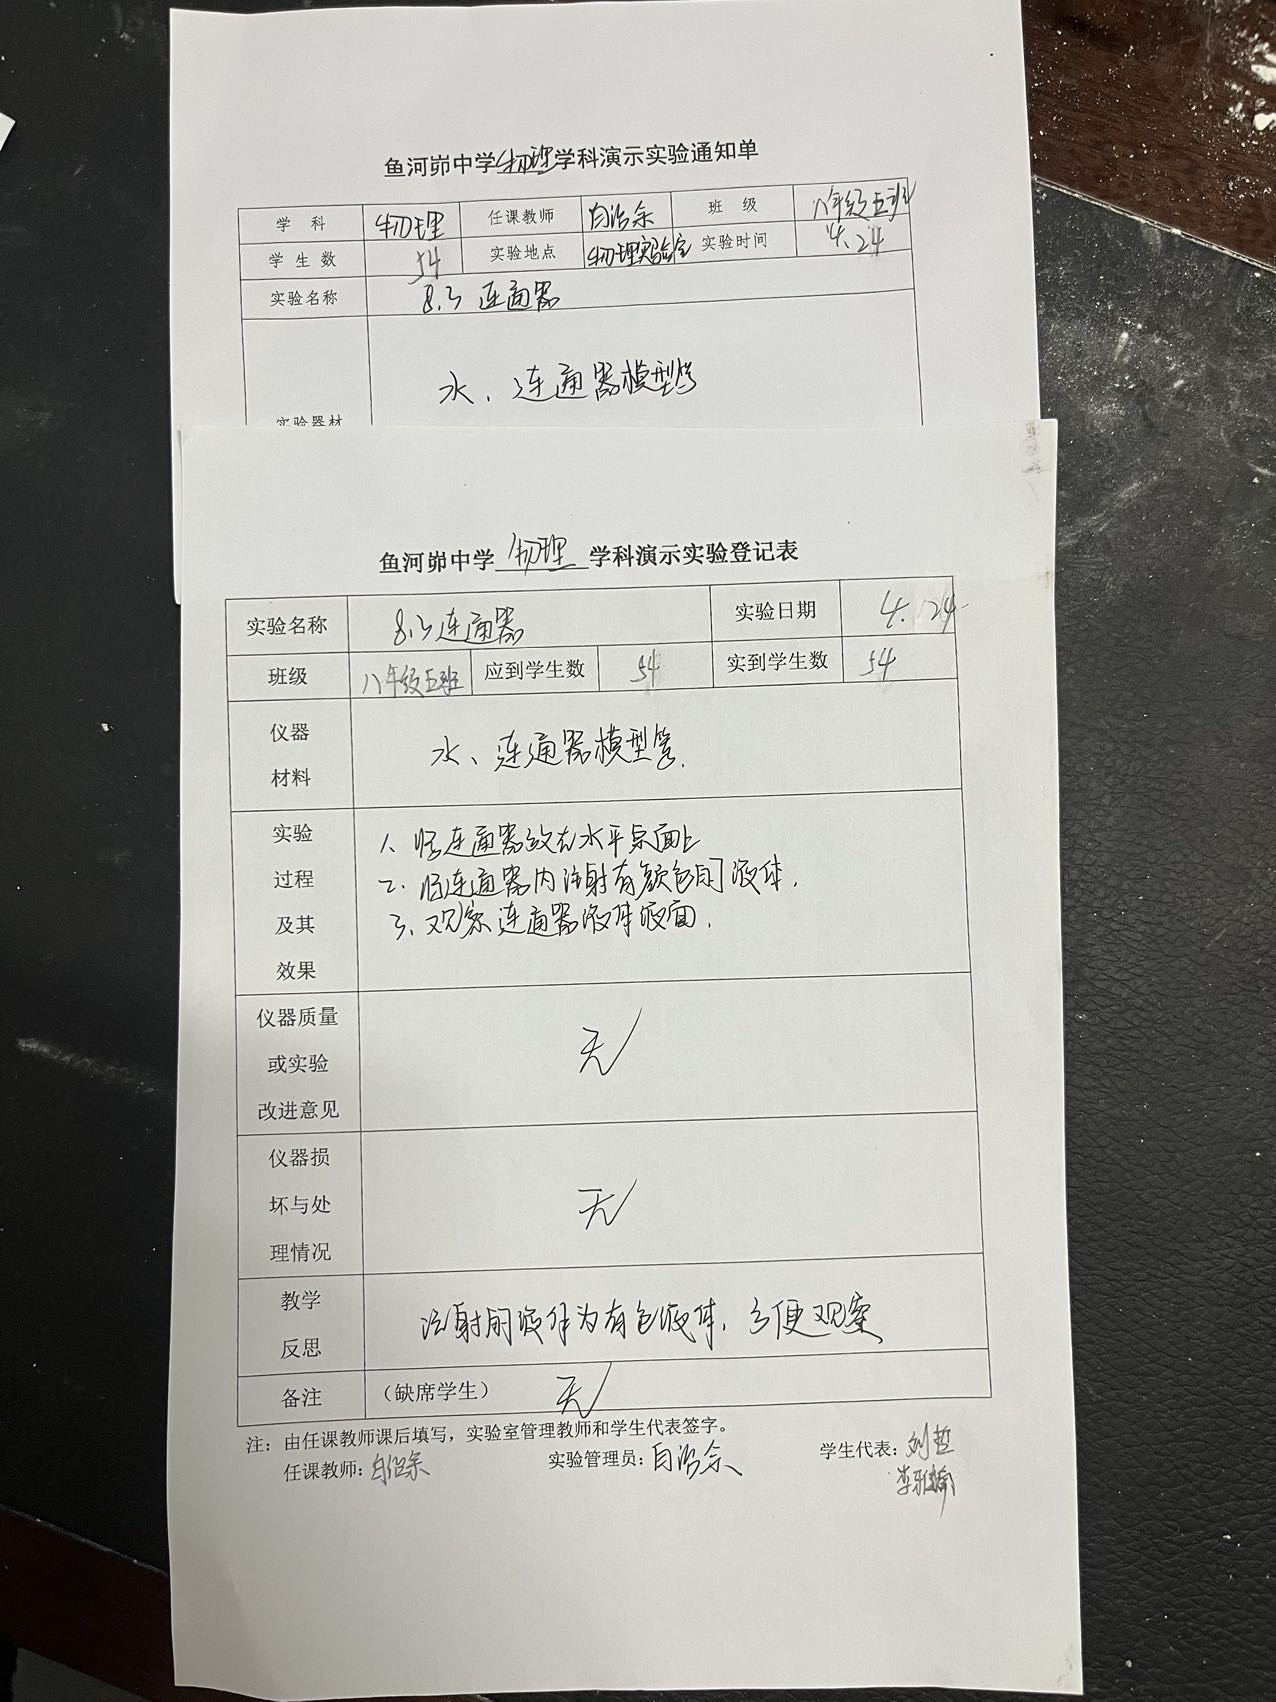 鱼河峁中学物理学科演示实验通知单
学 科 物理 任课教师 班 级 八年级五班
学生数 54 实验地点 物理实验室 实验时间 4.24
实验名称 8.3 连通器
水、连通器模型管
实验器材
鱼河峁中学 物理 学科演示实验登记表
实验名称 8.3连通器 实验日期 4.24
班级 八年级五班 应到学生数 54 实到学生数 54
仪器
材料
水、连通器模型管.
实验
过程
及其
效果
1、将连通器放在水平桌面上
2. 将连通器内注射有颜色的液体.
3、观察连通器液体液面.
仪器质量
或实验
改进意见
无
仪器损
坏与处
理情况
无
教学
反思
注射的液体为有色液体.方便观察
备注 （缺席学生） 无
注：由任课教师课后填写，实验室管理教师和学生代表签字。
任课教师: 实验管理员: 学生代表: 刘哲